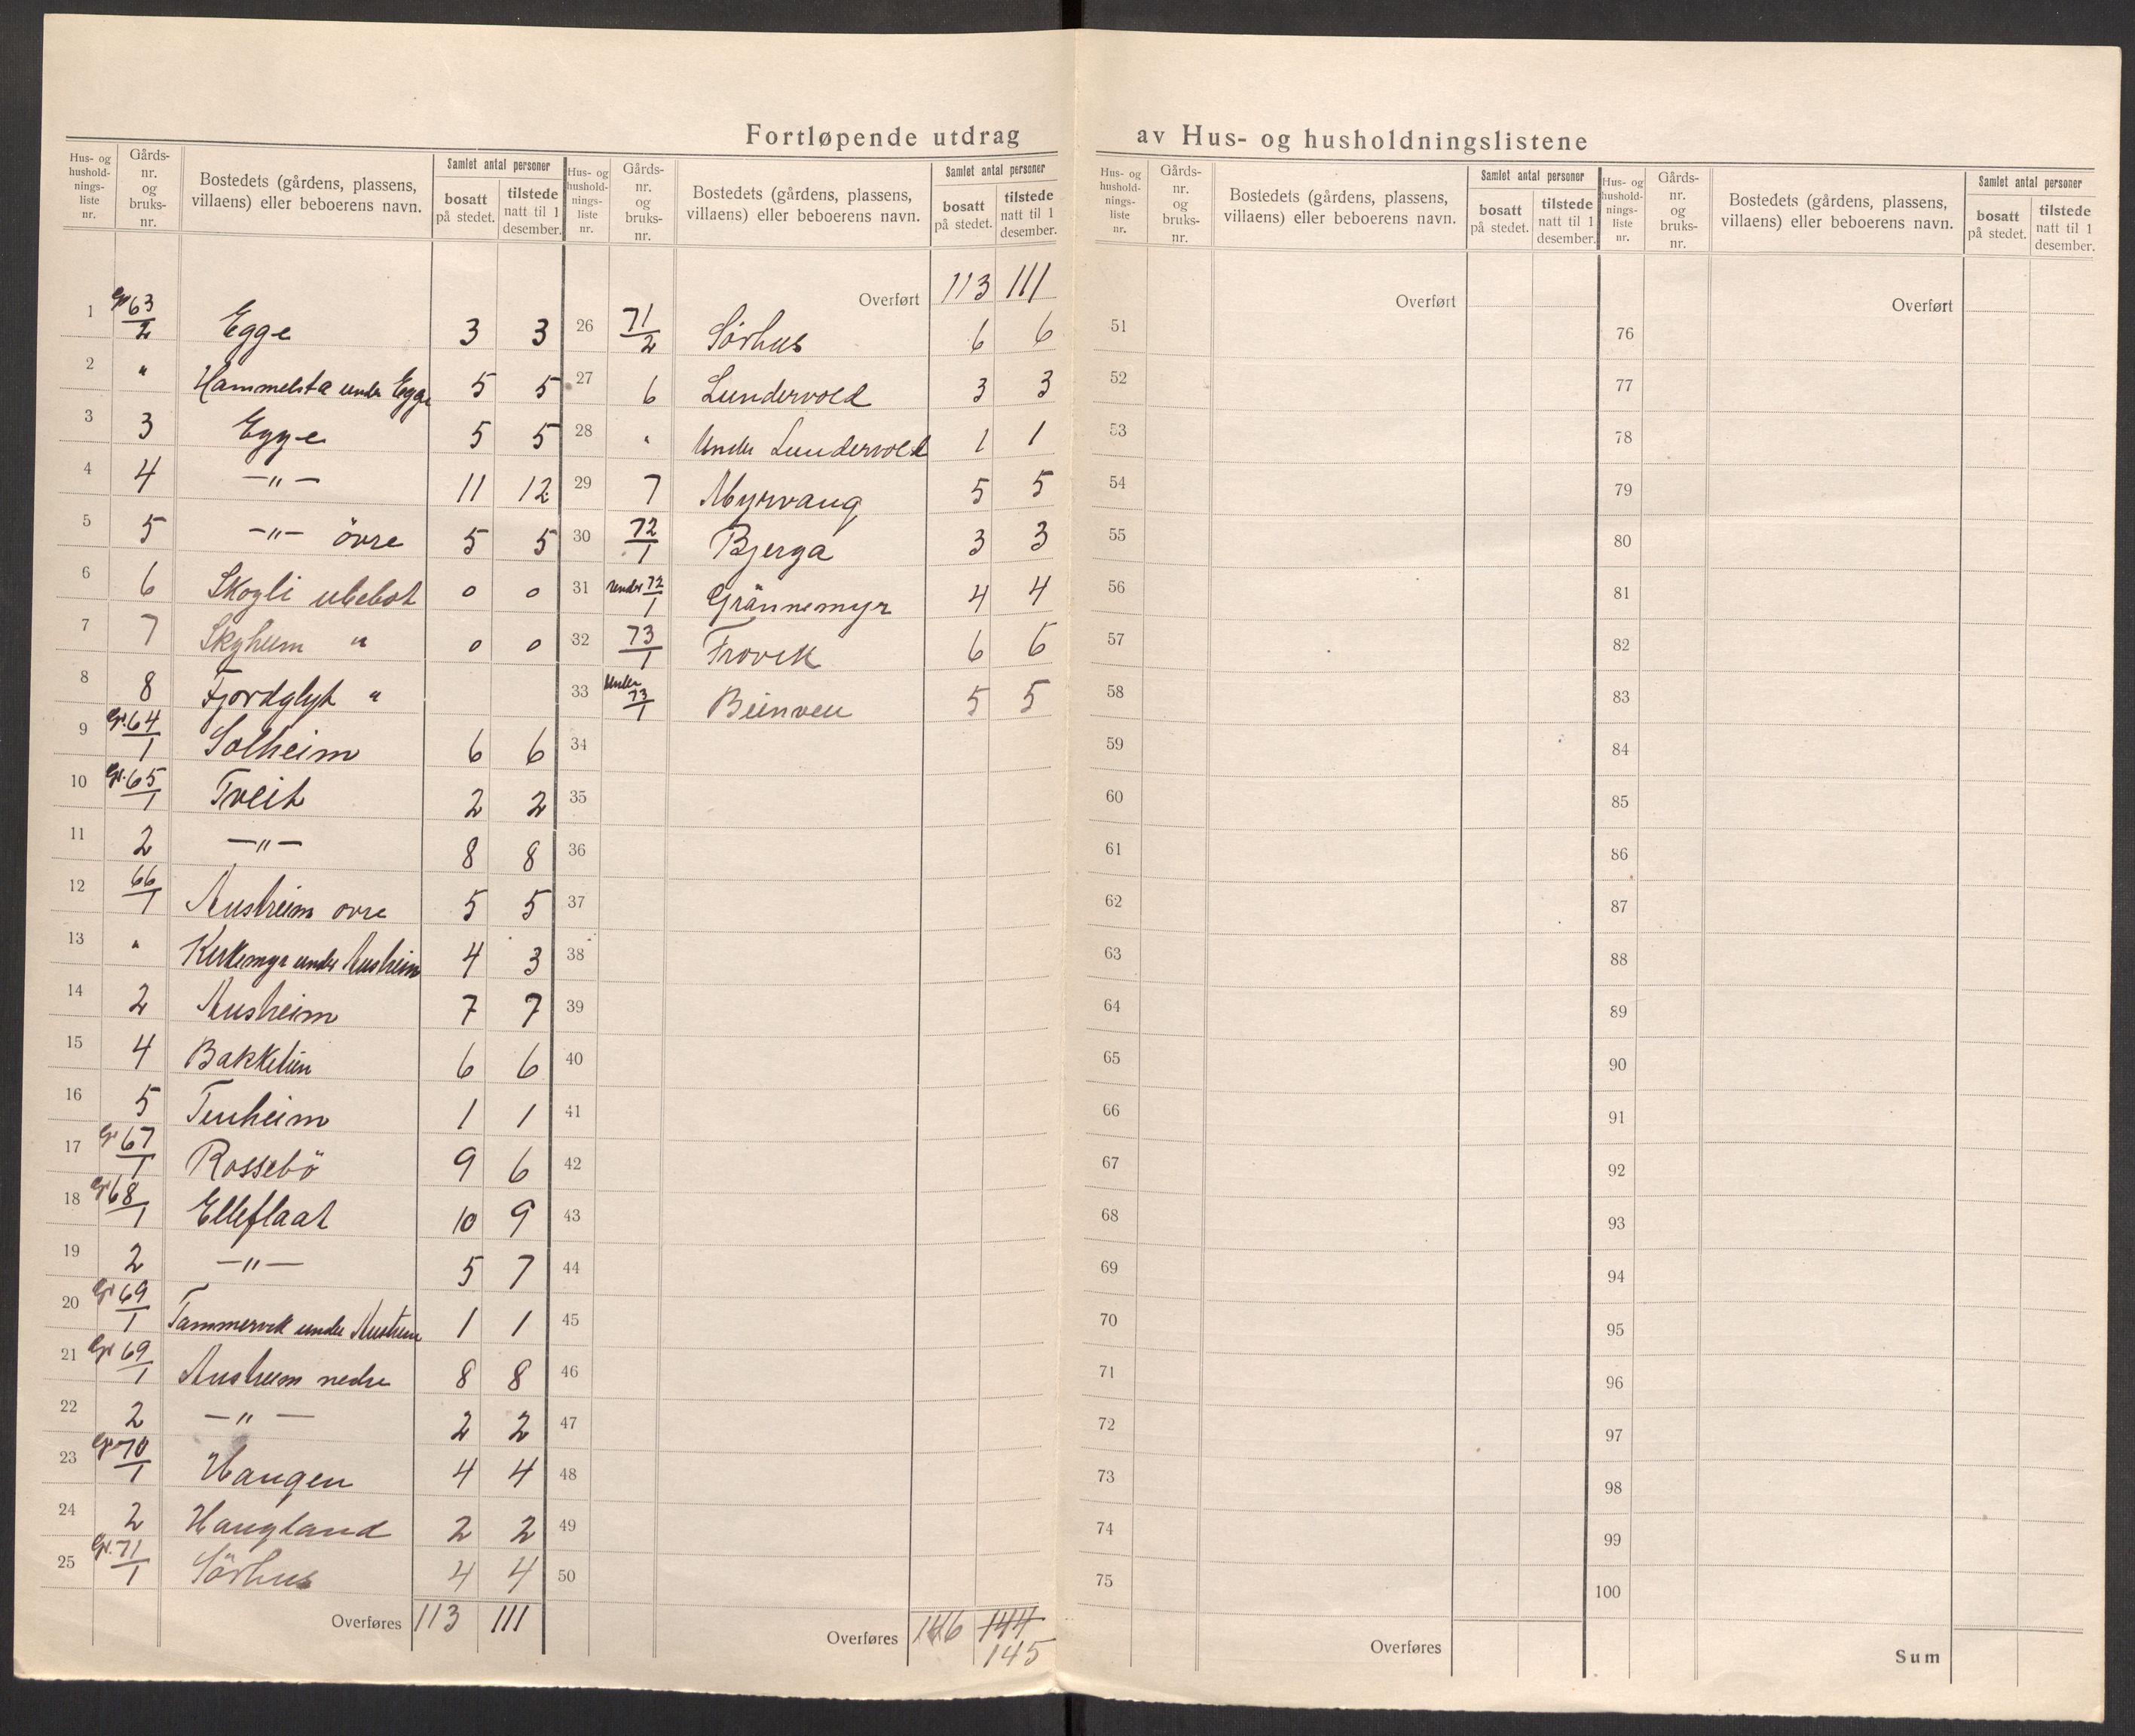 Fortløpende utdrag av Hus- og husholdningslistene
Hus- og husholdnings-liste nr. | Gårds-nr. og bruks-nr. | Bostedets (gårdens, plassens, villaens) eller beboerens navn. | Samlet antal personer | bosatt på stedet. | tilstede natt til 1 desember.
1 Gr 63/2 Egge 3 3
2 " Hammelsta under Egge 5 5
3 3 Egge 5 5
4 4 —"— 11 12
5 5 —"— övre 5 5
6 6 Skogli ubebot 0 0
7 7 Skyheim " 0 0
8 8 Fjordglyt "
9 Gr. 64/1 Solheim 6 6
10 Gr. 65/1 Tveit 2 2
11 2 —"— 8 8
12 66/1 Austreim ovre 5 5
13 " Kirkemyr under Austreim 4 3
14 2 Austreim 7 7
15 4 Bakkelün 6 6
16 5 Tunheim 1 1
17 Gr 67/1 Rossebö 9 6
18 Gr 68/1 Elleflaat 10 9
19 2 —"— 5 7
20 Gr 69/1 Tammervik under Austreim 1 1
21 Gr 69/1 Austreim nedre 8 8
22 2 —"— 2 2
23 Gr 70/1 Haugen 4 4
24 2 Haugland 2 2
25 Gr. 71/1 Sörhus 4 4
Overføres 113 111
Hus- og husholdnings-liste nr. | Gårds-nr. og bruks-nr. | Bostedets (gårdens, plassens, villaens) eller beboerens navn. | Samlet antal personer | bosatt på stedet. | tilstede natt til 1 desember.
Overført 113 111
26 71/2 Sörhus 6 6
27 6 Lundervold 3 3
28 " Under Lundervold 1 1
29 7 Myrvang 5 5
30 72/1 Bjerga 3 3
31 Under 72/1 Grännemyr 4 4
32 73/1 Frovik 6 6
33 Under 73/1 5 5
34
35
36
37
38
39
40
41
42
43
44
45
46
47
48
49
50
Overføres 146 144
145
Hus- og husholdnings-liste nr. | Gårds-nr. og bruks-nr. | Bostedets (gårdens, plassens, villaens) eller beboerens navn. | Samlet antal personer | bosatt på stedet. | tilstede natt til 1 desember.
Overført
51
52
53
54
55
56
57
58
59
60
61
62
63
64
65
66
67
68
69
70
71
72
73
74
75
Overføres
Hus- og husholdnings-liste nr. | Gårds-nr. og bruks-nr. | Bostedets (gårdens, plassens, villaens) eller beboerens navn. | Samlet antal personer | bosatt på stedet. | tilstede natt til 1 desember.
Overført
76
77
78
79
80
81
82
83
84
85
86
87
88
89
90
91
92
93
94
95
96
97
98
99
100
Sum